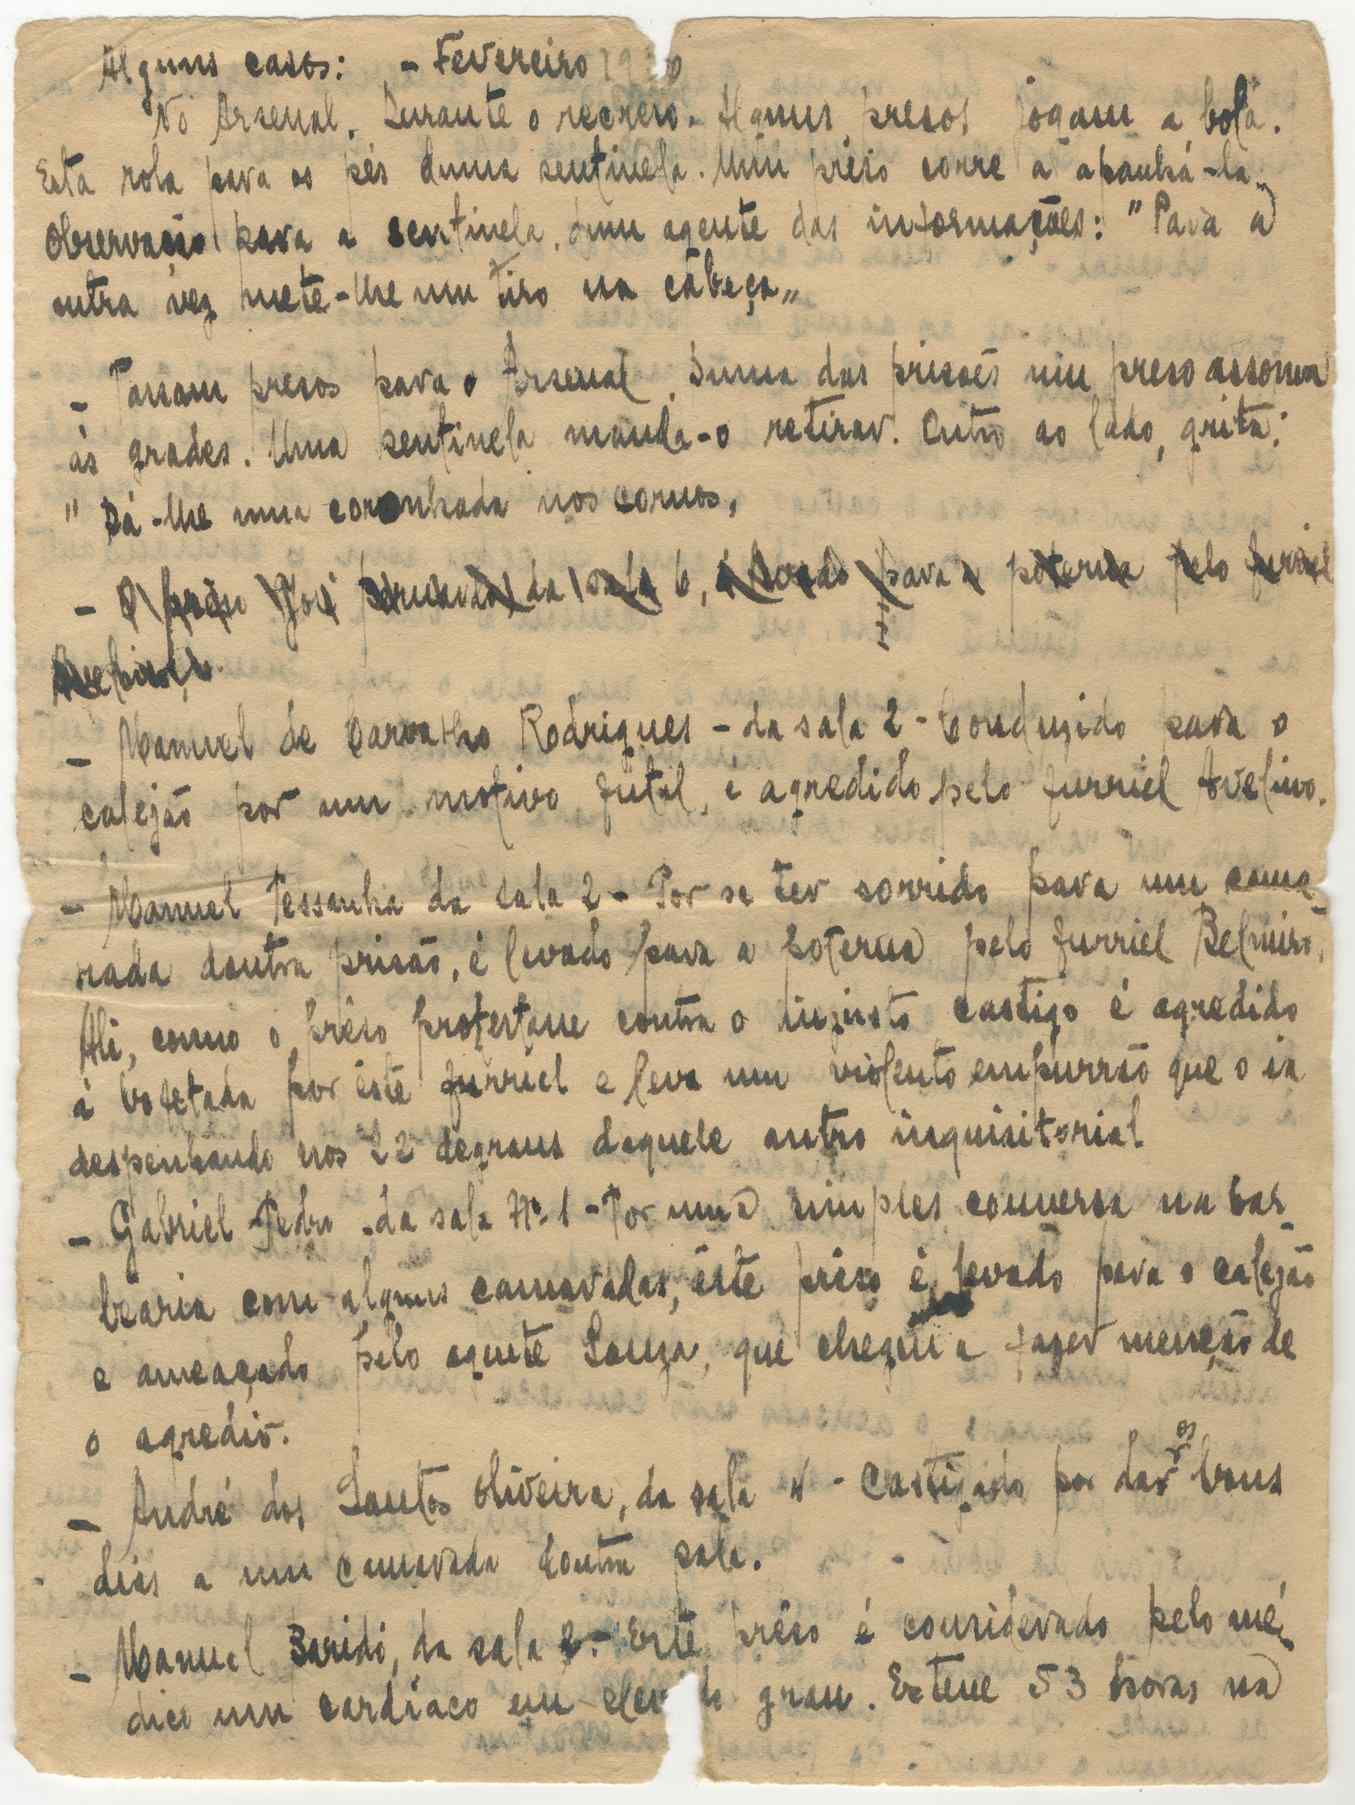 Alguns casos: - Fevereiro
No Arsenal. Durante o recreio. Alguns presos jogam a bola.
Esta rola para os pés duma sentinela. Um prêso corre a apanhá-la.
Observação para a sentinela, dum agente das informações: "Para a
outra vez mete-lhe um tiro na cabeça"
- Passam presos para o Arsenal. Duma das prisões um preso assoma
às grades. Uma sentinela manda-o retirar. Outro ao lado, grita:
"Dá-lhe uma coronhada nos cornos"
- O prêso José da sala 6, é levado para a poterna pelo furriel
- Manuel de Carvalho Rodrigues - da sala 2 - Conduzido para o
calejão por um motivo fútil, é agredido pelo furriel Avelino.
- Manuel Pessanha da sala 2 - Por se ter sorrido para um cama-
rada doutra prisão, é levado para a poterna pelo furriel Belmiro.
Ali, como o prêso protestasse contra o injusto castigo é agredido
á bofetada por êste furriel e leva um violento empurrão que o ia
despenhando nos 22 degraus daquele antro inquisitorial
- Gabriel Pedro - da sala Nº 1 - Por uma simples conversa na bar-
bearia com alguns camaradas, êste prêso é levado para o calejão
e ameaçado pelo agente Souza, que chegou a fazer menção de
o agredir.
- André dos Santos Oliveira, da sala 4 - Castigado por dar os bons
dias a um camarada doutra sala.
- Manuel da sala 2. - Este prêso é considerado pelo mé-
dico um cardíaco em elevado grau. Esteve 53 horas na